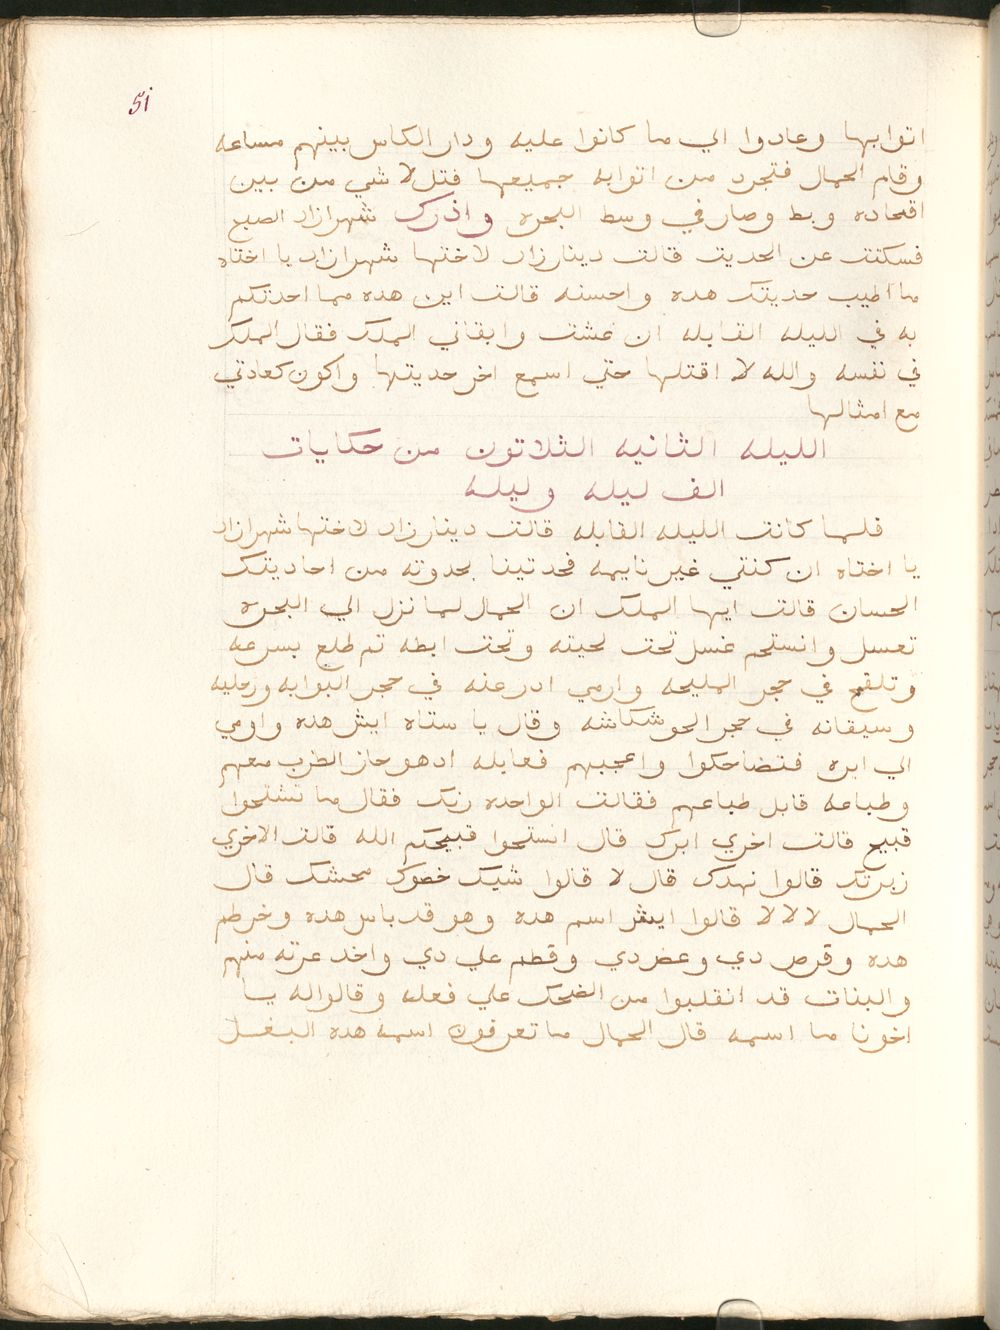 51
اتوابها وعادوا الي ما كانوا عليه ودار الكاس بينهم ساعه
وقام الحمال فتجرد من اتوابه جميعها فتدلا شي من بين
افحاده وبط وصار في وسط البحره واذرك شهرازاد الصبح
فسكتت عن الحديت قالت دينارزاد لاختها شهرازاد يا اختاه
ما اطيب حديتك هده واحسنه قالت اين هده مما احدتكم
به في الليله القابله ان عشت وابقاني الملك فقال الملك
في نفسه والله لا اقتلها حتي اسمع اخر حديتها واكون كعادتي
مع امثالها
الليله الثانيه الثلاتون من حكايات
الف ليله وليله
فلما كانت الليله القابله قالت دينارزاد لاختها شهرازاد
يا اختاه ان كنتي غير نايمه فحدتينا بحدوته من احاديتك
الحسان قالت ايها الملك ان الحمال لما نزل الي البحره
تغسل وانستحم غسل تحت لحيته وتحت ابطه تم طلع بسرعه
وتلقح في حجر المليحه وارمي ادرعنه في حجر البوابه ورجليه
وسيقانه في حجر الحوشكاشه وقال يا ستاه ايش هده واومي
الي ايره فتضاحكوا واعجبهم فعايله ادهو حاز الطرب معهم
وطباعه قابل طباعهم فقالت الواحده زبك فقال ما تستحوا
قبيح قالت اخري ايرك قال انستحوا قبيحكم الله قالت الاخري
زبرتك قالوا نهدك قال لا قالوا شيك خصوك محشك قال
الحمال لا لا لا قالوا ايش اسم هده وهو قد باس هده وخرطم
هده وقرص دي وعض دي وقطم علي دي واخد عرته منهم
والبنات قد انقلبوا من الضحك علي فعله وقالواله يا
اخونا ما اسمه قال الحمال ما تعرفون اسمه هده البغل